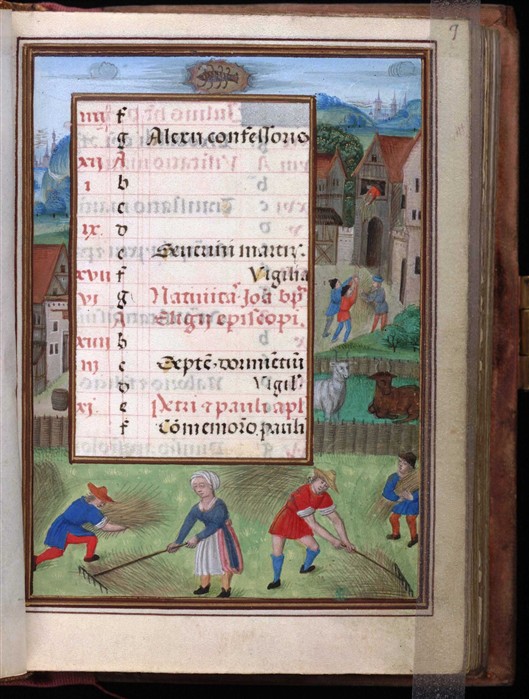 7
iiii f
g Alexii confessoris
xii A
i b
c
ix d
e Seuerini martir.
xvii f Vigilia
vi g Natiuita. Joh. bpt.
A Eligii episcopi.
xiiii b
iii c Septē dormientiū
d Vigil.
xi e Petri et pauli apl
f Cōmemoro. pauli